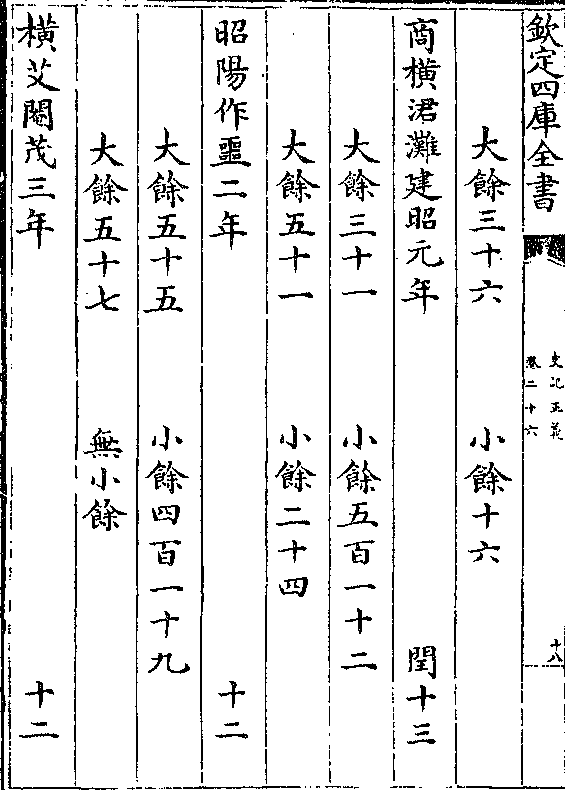 欽定四庫全書
史記正義
卷二十六
十八
大餘三十六 小餘十六
商橫涒灘建昭元年 閏十三
大餘三十一 小餘五百一十二
大餘五十一 小餘二十四
昭陽作噩二年 十二
大餘五十五 小餘四百一十九
大餘五十七 無小餘
橫艾閹茂三年 十二